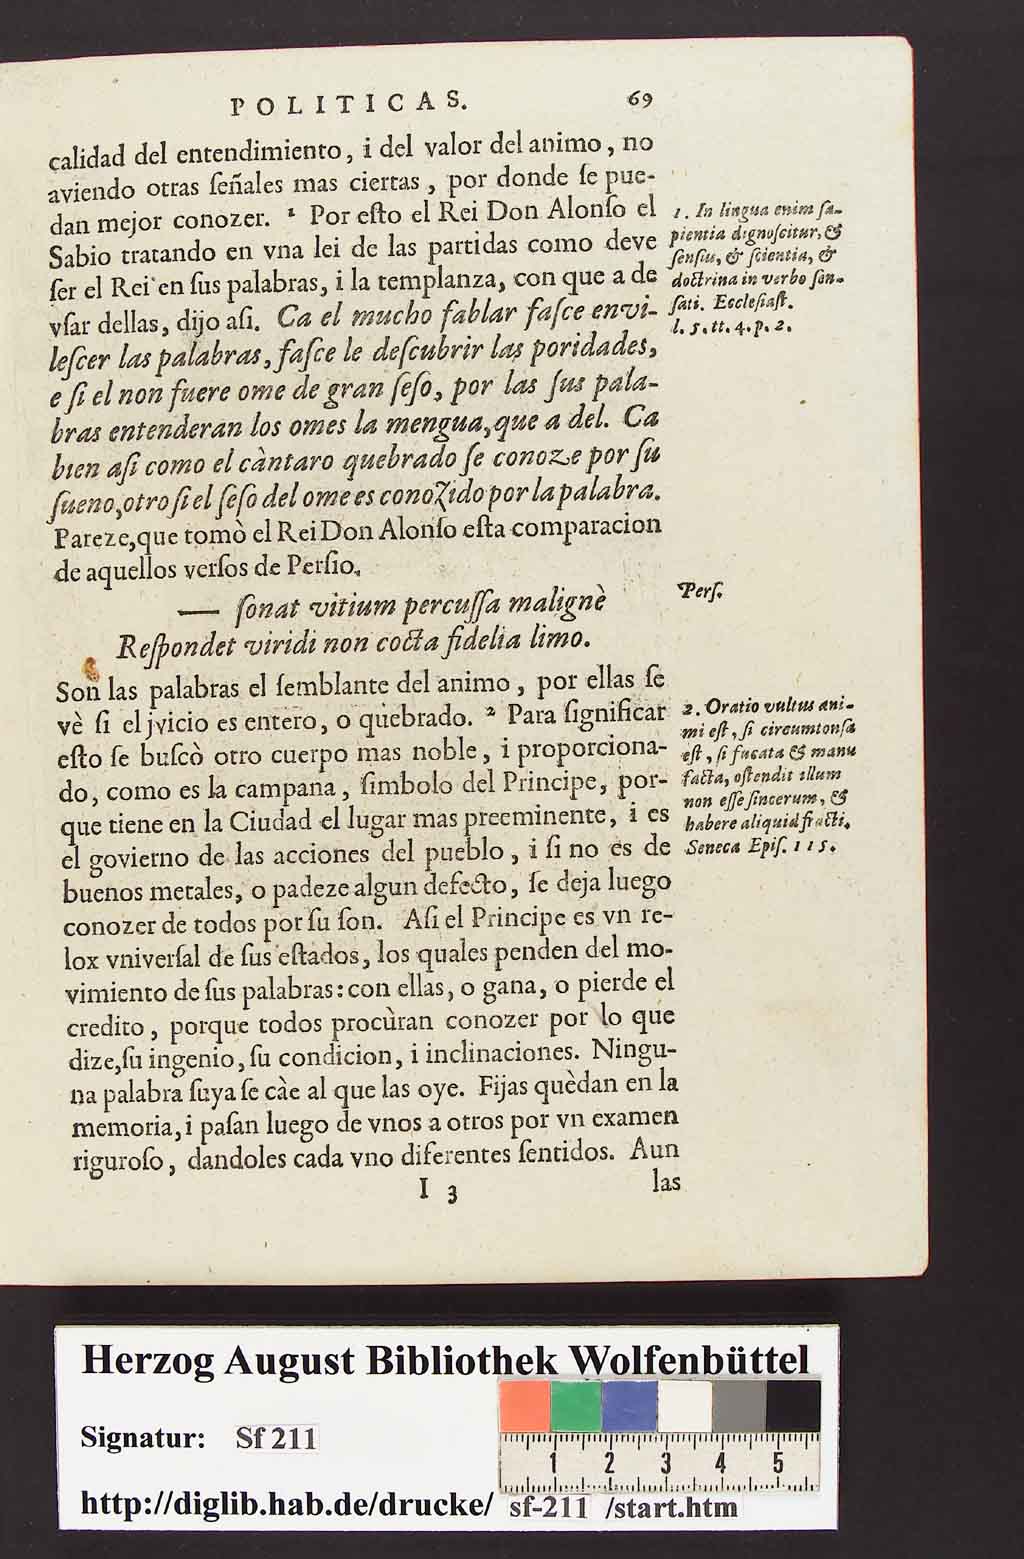 POLITICAS. 69
calidad del entendimiento, i del valor del animo, no
aviendo otras ſeñales mas ciertas, por donde ſe pue-
dan mejor conozer. ¹ Por eſto el Rei Don Alonſo el
Sabio tratando en vna lei de las partidas como deve
ſer el Rei en ſus palabras, i la templanza, con que a de
vſar dellas, dijo aſi. Ca el mucho fablar faſce envi-
leſcer las palabras, faſce le deſcubrir las poridades,
e ſi el non fuere ome de gran ſeſo, por las ſus pala-
bras entenderan los omes la mengua, que a del. Ca
bien aſi como el càntaro quebrado ſe conoze por ſu
ſueno, otro ſi el ſeſo del ome es conozido por la palabra.
Pareze, que tomò el Rei Don Alonſo eſta comparacion
de aquellos verſos de Perſio.
— ſonat vitium percuſſa malignè
Reſpondet viridi non cocta fidelia limo.
Son las palabras el ſemblante del animo, por ellas ſe
vè ſi el jvicio es entero, o quebrado. ² Para ſignificar
eſto ſe buſcò otro cuerpo mas noble, i proporciona-
do, como es la campana, ſimbolo del Principe, por-
que tiene en la Ciudad el lugar mas preeminente, i es
el govierno de las acciones del pueblo, i ſi no es de
buenos metales, o padeze algun defecto, ſe deja luego
conozer de todos por ſu ſon. Aſi el Principe es vn re-
lox vniverſal de ſus eſtados, los quales penden del mo-
vimiento de ſus palabras: con ellas, o gana, o pierde el
credito, porque todos procùran conozer por lo que
dize, ſu ingenio, ſu condicion, i inclinaciones. Ningu-
na palabra ſuya ſe càe al que las oye. Fijas quèdan en la
memoria, i paſan luego de vnos a otros por vn examen
riguroſo, dandoles cada vno diferentes ſentidos. Aun
I 3 las
1. In lingua enim ſa-
pientia dignoſcitur, &
ſenſus, & ſcientia, &
doctrina in verbo ſen-
ſati. Eccleſiaſt.
l. 5. tt. 4. p. 2.
Perſ.
2. Oratio vultus ani-
mi eſt, ſi circumtonſa
eſt, ſi fucata & manu
facta, oſtendit illum
non eſſe ſincerum, &
habere aliquid fracti.
Seneca Epiſ. 115.
Herzog August Bibliothek Wolfenbüttel
Signatur: Sf 211
1 2 3 4 5
http://diglib.hab.de/drucke/ sf-211 /start.htm